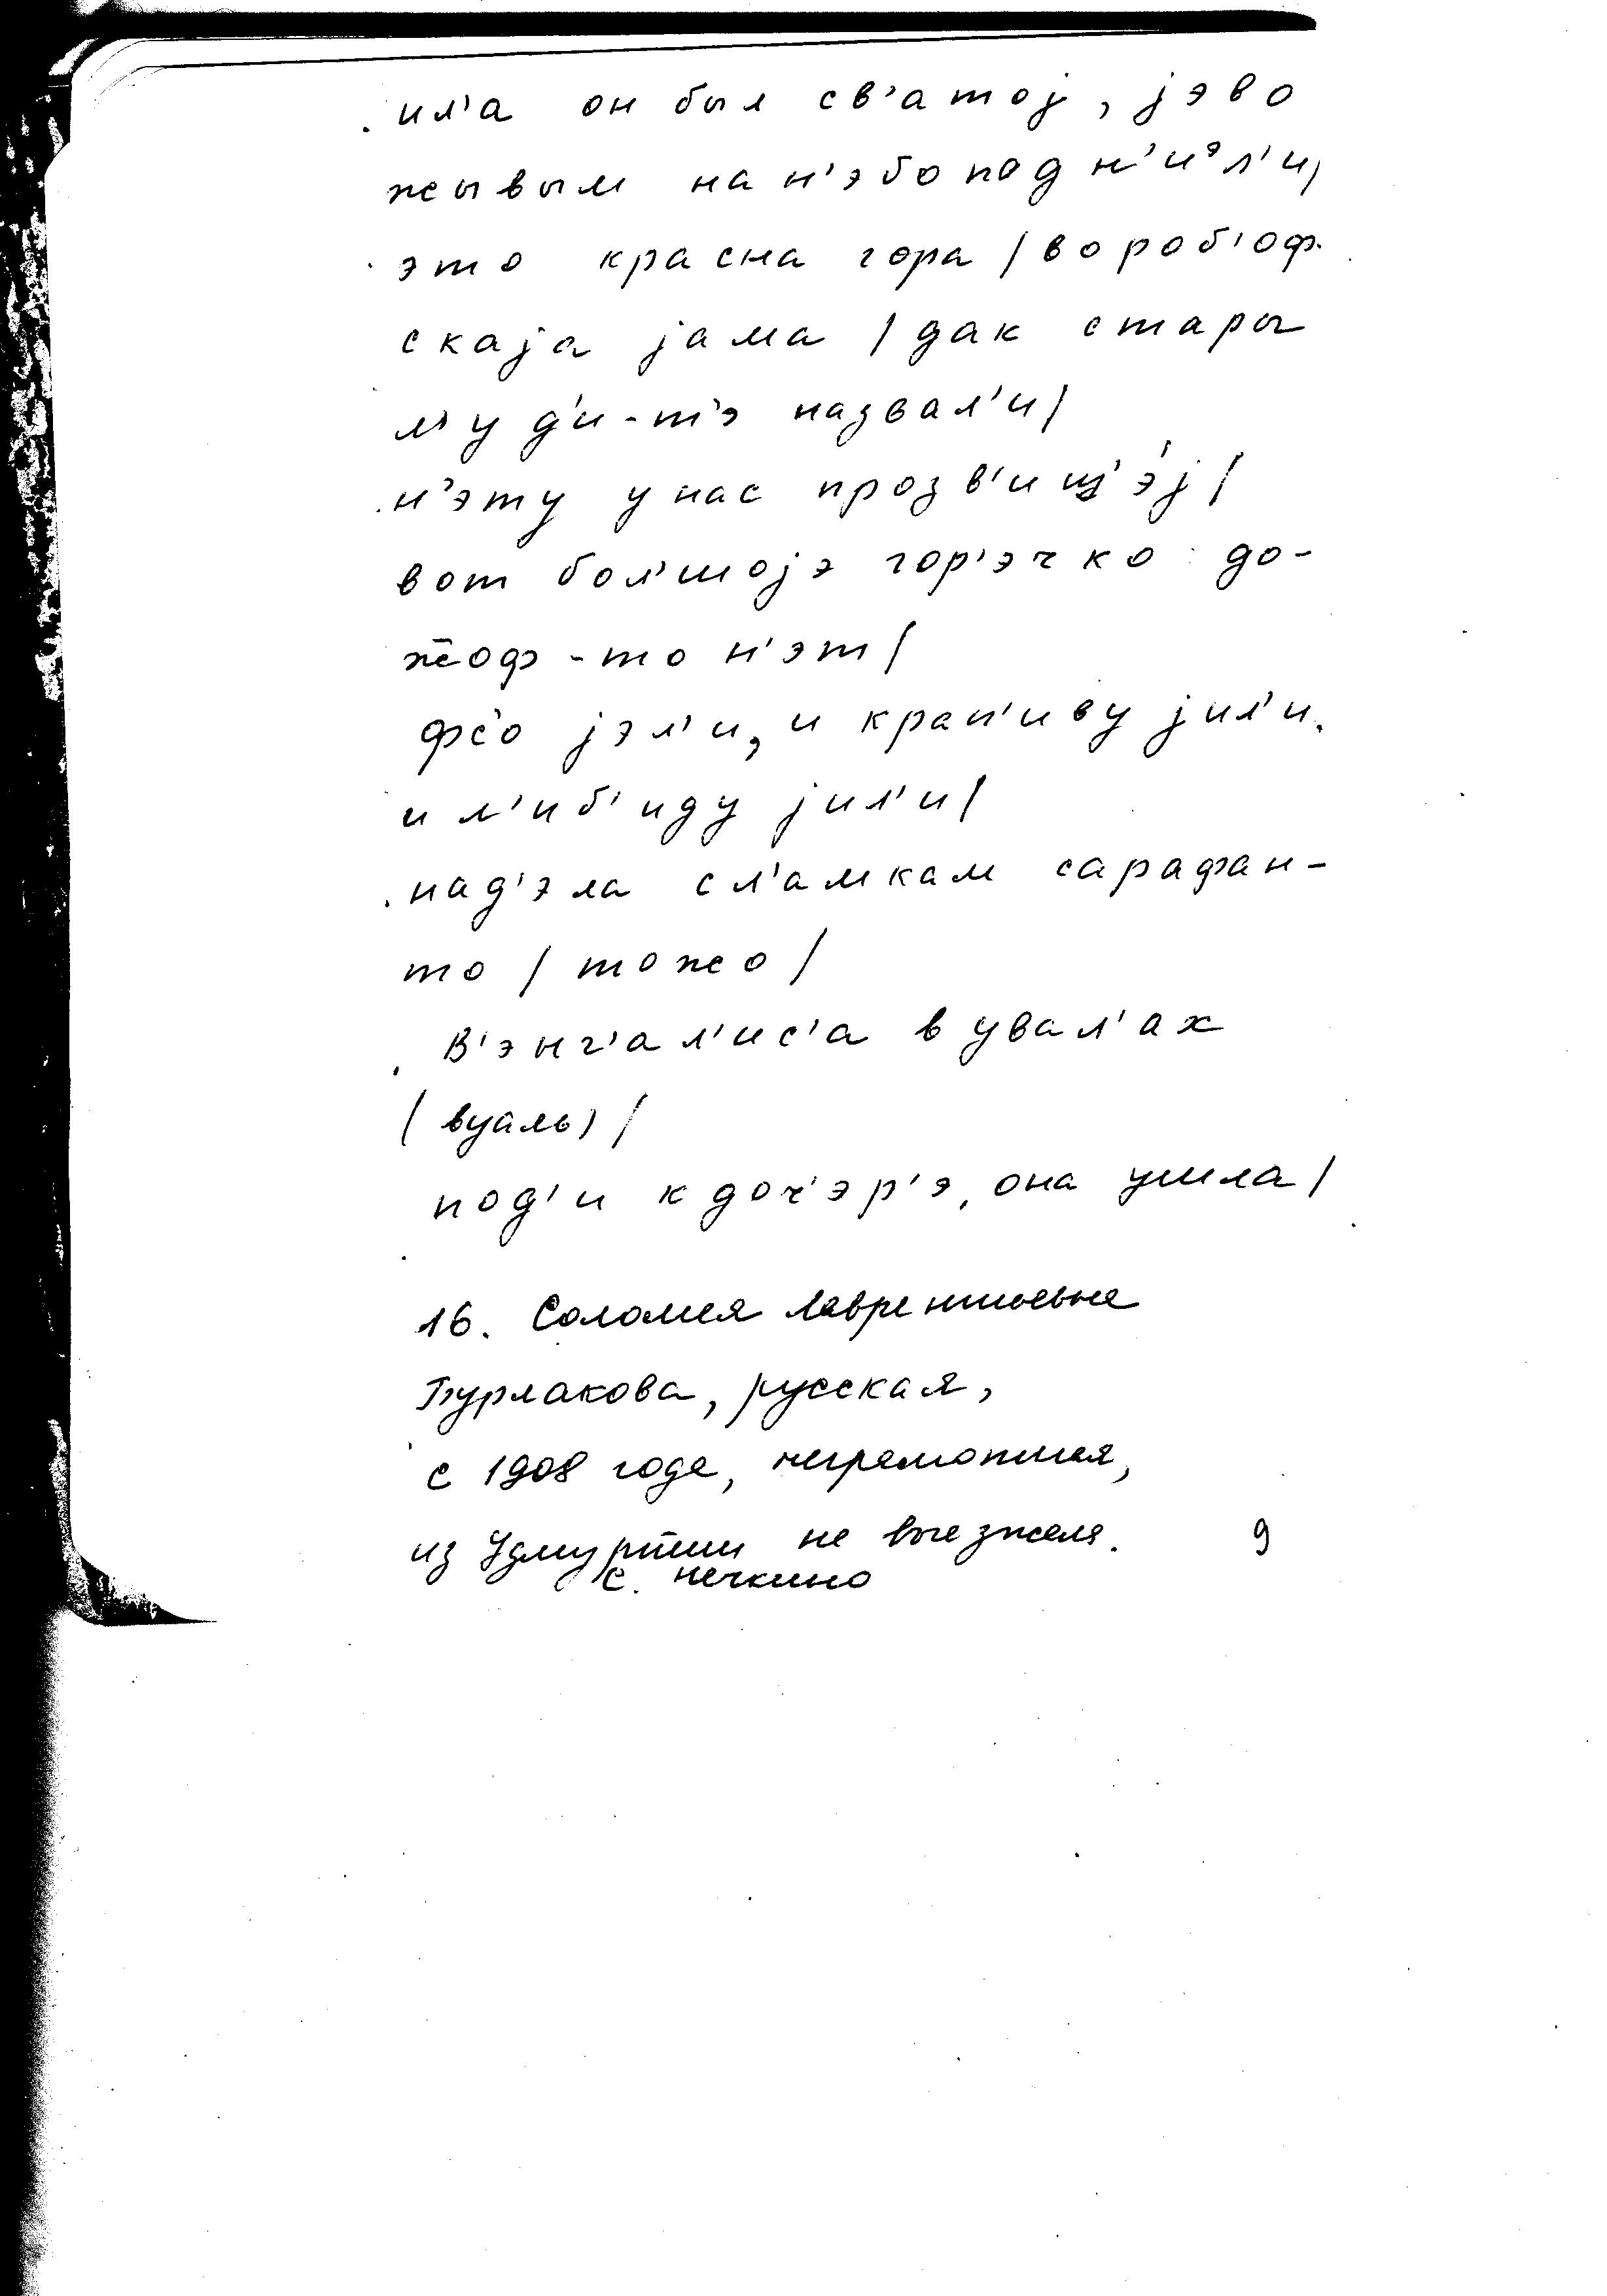 ил'а он был св'атој, јэво
жывым на н'эбо под н'иэл'и,
это красна гора / вороб'оф-
скаја јама / дак стары
л'уд'и-т'э назвал'и /
н'эту у нас прозв'ищ'эј /
вот бол'шојэ гор'эчко до-
ж̄оф-то н'эт /
фс'о јэл'и, и крап'иву јил'и,
и л'иб'иду јил'и /
над'эла с л'амкам сарафан-
то / тожо /
В'энч'ал'ис'а в увал'ах
(вуаль) /
под'и к доч'эр'э, она ушла /
16. Соломея Лаврентьевна
Бурлакова, русская,
с 1908 года, неграмотная,
из Удмуртии не выезжала. 9
с. Нечкино